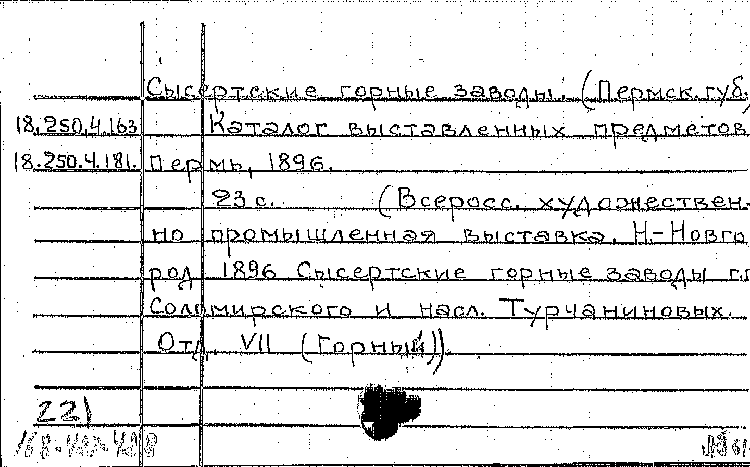 Сысертские горные заводы. (Пермск. губ.)
18.250.4.163 Каталог выставленных предметов
18.250.4.181. Пермь, 1896.
23 с. (Всеросс. художествен-
но промышленная выставка. Н.-Новго
род 1896 Сысертские горные заводы г.г
Соломирского и насл. Турчаниновых.
Отд. VII (Горный)).
22)